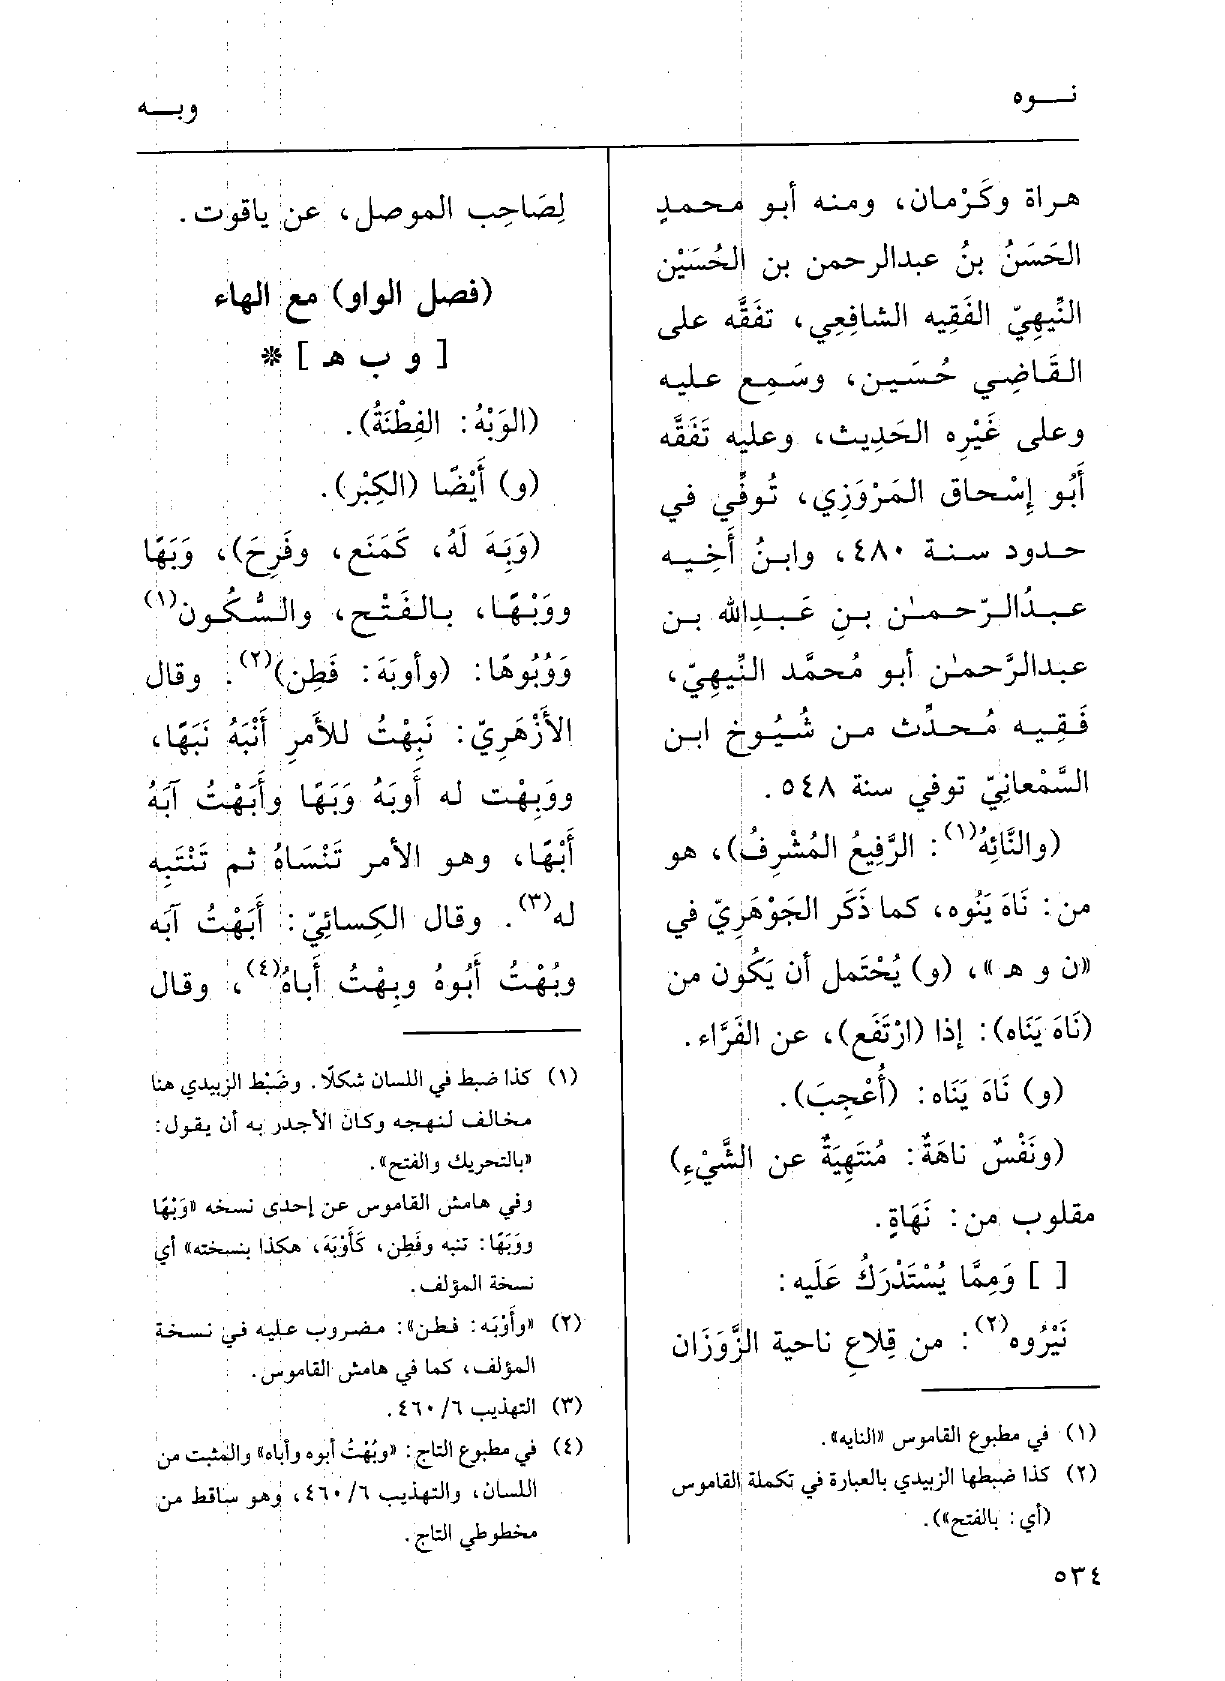 نـــوه
وبـــه
هراة وكَرْمان، ومنه أبو محمدٍ
الحَسَنُ بنُ عبدالرحمن بن الحُسَيْن
النِّيهِيّ الفَقِيه الشافِعِي، تفَقَّه على
القَاضِي حُسَين، وسَمِع عليه
وعلى غَيْرِه الحَدِيث، وعليه تَفَقَّه
أَبُو إِسْحاق المَرْوَزِي، تُوفِّي في
حدود سنة ٤٨٠، وابنُ أَخِيه
عبدُالرّحمـٰن بنِ عَبدِالله بن
عبدالرَّحمـٰن أبو مُحمَّد النِّيهِيّ،
فَقِيه مُحدِّث من شُيُوخ ابن
السَّمْعانِيّ توفي سنة ٥٤٨.
(والنَّائِهُ(١): الرَّفِيعُ المُشْرِفُ)، هو
من: نَاهَ يَنُوه، كما ذَكَر الجَوْهَرِيّ في
«ن و هـ»، (و) يُحْتَمل أن يَكُون من
(نَاهَ يَنَاه): إذا (ارْتَفَع)، عن الفَرَّاء.
(و) نَاهَ يَنَاه: (أُعْجِبَ).
(ونَفْسٌ ناهَةٌ: مُنتَهِيَةٌ عن الشَّيْءِ)
مقلوب من: نَهَاةٍ.
[ ] وَمِمَّا يُسْتَدْرَكُ عَلَيه:
نَيْرُوه(٢): من قِلاعِ ناحية الزَّوَزَان
(١) في مطبوع القاموس «النايه».
(٢) كذا ضبطها الزبيدي بالعبارة في تكملة القاموس
(أي: بالفتح»).
لِصَاحِب الموصل، عن ياقوت.
(فصل الواو) مع الهاء
[ و ب هـ ] *
(الوَبْهُ: الفِطْنَةُ).
(و) أَيْضًا (الكِبْر).
(وَبِهَ لَهُ، كَمَنَع، وفَرِحَ)، وَبَهًا
ووَبْهًا، بالفَتْح، والسُّكُون(١)
وَوُبُوهًا: (وأوبَهَ: فَطِن)(٢). وقال
الأَزْهَرِيّ: نَبِهْتُ للأمرِ أَنْبَهُ نَبَهًا،
ووَبِهْت له أَوبَهُ وَبَهًا وأَبَهْتُ آبَهُ
أَبْهًا، وهو الأمر تَنْسَاهُ ثم تَنْتَبِه
له(٣). وقال الكِسائِيّ: أَبَهْتُ آبَه
وبُهْتُ أَبُوهُ وبِهْتُ أَباهُ(٤)، وقال
(١) كذا ضبط في اللسان شكلًا. وضَبْط الزبيدي هنا
مخالف لنهجه وكان الأجدر به أن يقول:
«بالتحريك والفتح».
وفي هامش القاموس عن إحدى نسخه «وَبْهًا
ووَبَهًا: تنبه وفَطِن، كَأَوْبَهَ، هكذا بنسخته» أي
نسخة المؤلف.
(٢) «وأَوْبَه: فطن»: مضروب عليه في نسخة
المؤلف، كما في هامش القاموس.
(٣) التهذيب ٦/ ٤٦٠.
(٤) في مطبوع التاج: «وبُهْتُ أبوه وأباه» والمثبت من
اللسان، والتهذيب ٦/ ٤٦٠، وهو ساقط من
مخطوطي التاج.
٥٣٤